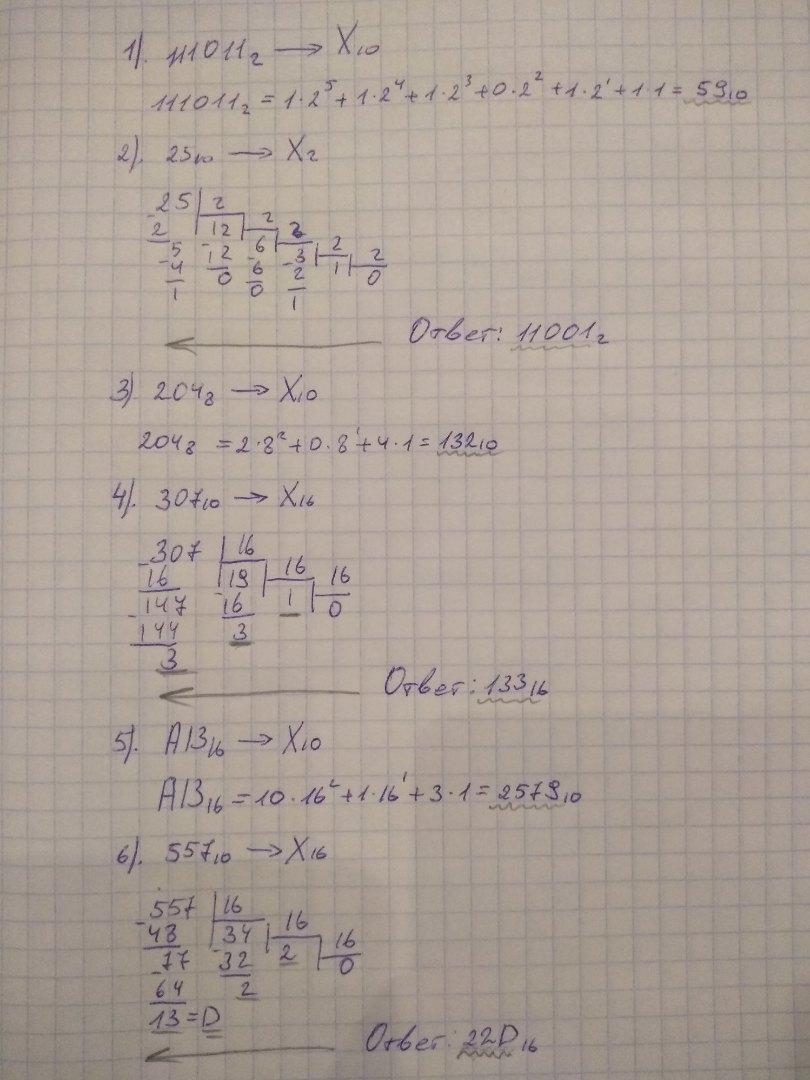 1). 111011₂ → X₁₀
111011₂ = 1·2⁵+1·2⁴+1·2³+0·2²+1·2¹+1·1 = 59₁₀
2). 25₁₀ → X₂
-25 | 2
2 12 2
5 -12 -6 2
-4 0 6 -3 2
1 0 2 1 2
1 0
Ответ: 11001₂
3) 204₈ → X₁₀
204₈ = 2·8²+0·8¹+4·1 = 132₁₀
4). 307₁₀ → X₁₆
-307 | 16
16 -19 16
-147 16 1 16
144 3 0
3
Ответ: 133₁₆
5). A13₁₆ → X₁₀
A13₁₆ = 10·16²+1·16¹+3·1 = 2579₁₀
6). 557₁₀ → X₁₆
-557 | 16
48 -34 16
-77 32 2 16
64 2 0
13 = D
Ответ: 22D₁₆